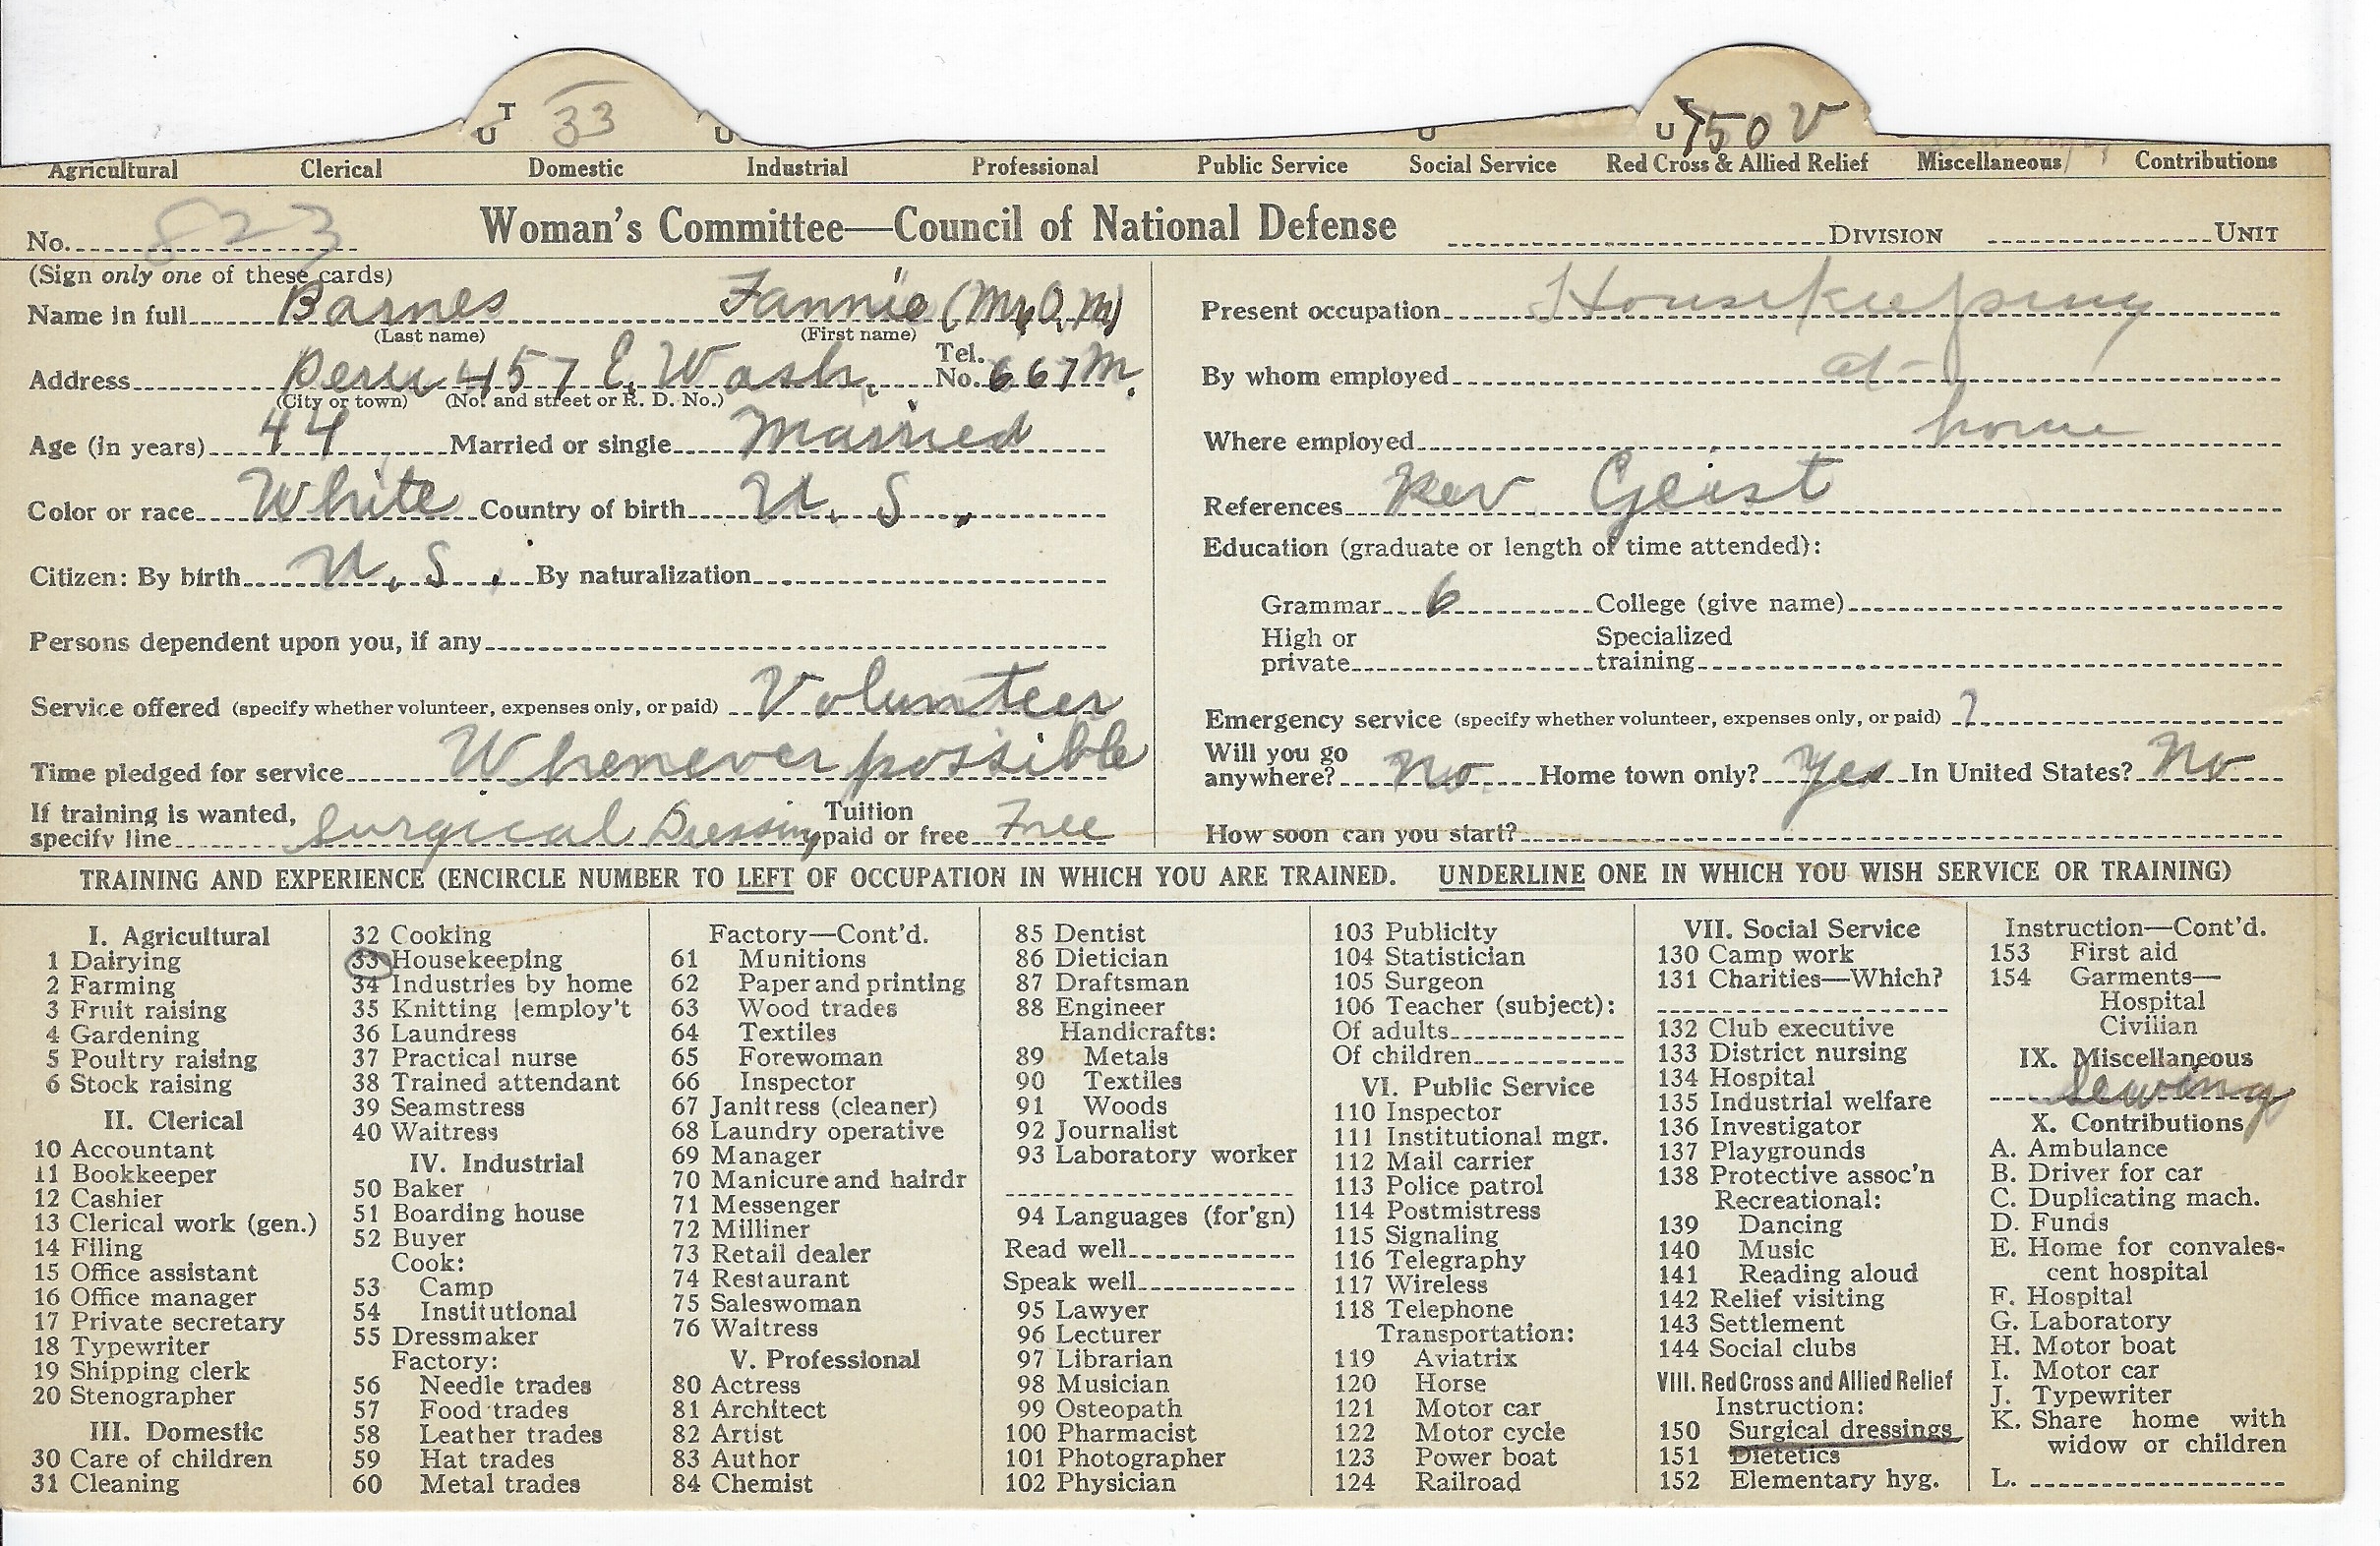 T
U 33 U U U 150 V
Agricultural Clerical Domestic Industrial Professional Public Service Social Service Red Cross & Allied Relief Miscellaneous Contributions
No. 823 Woman's Committee—Council of National Defense DIVISION UNIT
(Sign only one of these cards)
Name in full Barnes Fannie (Mrs O. M)
(Last name) (First name)
Address Peru 457 E. Wash. Tel. No. 667 M.
(City or town) (No. and street or R. D. No.)
Age (in years) 44 Married or single Married
Color or race White Country of birth U. S.
Citizen: By birth U. S. By naturalization
Persons dependent upon you, if any
Service offered (specify whether volunteer, expenses only, or paid) Volunteer
Time pledged for service Whenever possible
If training is wanted, specify line Surgical Dressing Tuition paid or free Free
Present occupation Housekeeping
By whom employed at
Where employed home
References Rev Geist
Education (graduate or length of time attended):
Grammar 6 College (give name)
High or private Specialized training
Emergency service (specify whether volunteer, expenses only, or paid) ?
Will you go anywhere? No Home town only? Yes In United States? No
How soon can you start?
TRAINING AND EXPERIENCE (ENCIRCLE NUMBER TO LEFT OF OCCUPATION IN WHICH YOU ARE TRAINED. UNDERLINE ONE IN WHICH YOU WISH SERVICE OR TRAINING)
I. Agricultural
1 Dairying
2 Farming
3 Fruit raising
4 Gardening
5 Poultry raising
6 Stock raising
II. Clerical
10 Accountant
11 Bookkeeper
12 Cashier
13 Clerical work (gen.)
14 Filing
15 Office assistant
16 Office manager
17 Private secretary
18 Typewriter
19 Shipping clerk
20 Stenographer
III. Domestic
30 Care of children
31 Cleaning
32 Cooking
33 Housekeeping
34 Industries by home
35 Knitting [employ't
36 Laundress
37 Practical nurse
38 Trained attendant
39 Seamstress
40 Waitress
IV. Industrial
50 Baker
51 Boarding house
52 Buyer
Cook:
53 Camp
54 Institutional
55 Dressmaker
Factory:
56 Needle trades
57 Food trades
58 Leather trades
59 Hat trades
60 Metal trades
Factory—Cont'd.
61 Munitions
62 Paper and printing
63 Wood trades
64 Textiles
65 Forewoman
66 Inspector
67 Janitress (cleaner)
68 Laundry operative
69 Manager
70 Manicure and hairdr
71 Messenger
72 Milliner
73 Retail dealer
74 Restaurant
75 Saleswoman
76 Waitress
V. Professional
80 Actress
81 Architect
82 Artist
83 Author
84 Chemist
85 Dentist
86 Dietician
87 Draftsman
88 Engineer
Handicrafts:
89 Metals
90 Textiles
91 Woods
92 Journalist
93 Laboratory worker
94 Languages (for'gn)
Read well
Speak well
95 Lawyer
96 Lecturer
97 Librarian
98 Musician
99 Osteopath
100 Pharmacist
101 Photographer
102 Physician
103 Publicity
104 Statistician
105 Surgeon
106 Teacher (subject):
Of adults
Of children
VI. Public Service
110 Inspector
111 Institutional mgr.
112 Mail carrier
113 Police patrol
114 Postmistress
115 Signaling
116 Telegraphy
117 Wireless
118 Telephone
Transportation:
119 Aviatrix
120 Horse
121 Motor car
122 Motor cycle
123 Power boat
124 Railroad
VII. Social Service
130 Camp work
131 Charities—Which?
132 Club executive
133 District nursing
134 Hospital
135 Industrial welfare
136 Investigator
137 Playgrounds
138 Protective assoc'n
Recreational:
139 Dancing
140 Music
141 Reading aloud
142 Relief visiting
143 Settlement
144 Social clubs
VIII. Red Cross and Allied Relief
Instruction:
150 Surgical dressings
151 Dietetics
152 Elementary hyg.
Instruction—Cont'd.
153 First aid
154 Garments—
Hospital
Civilian
IX. Miscellaneous
Sewing
X. Contributions
A. Ambulance
B. Driver for car
C. Duplicating mach.
D. Funds
E. Home for convales-
cent hospital
F. Hospital
G. Laboratory
H. Motor boat
I. Motor car
J. Typewriter
K. Share home with
widow or children
L.